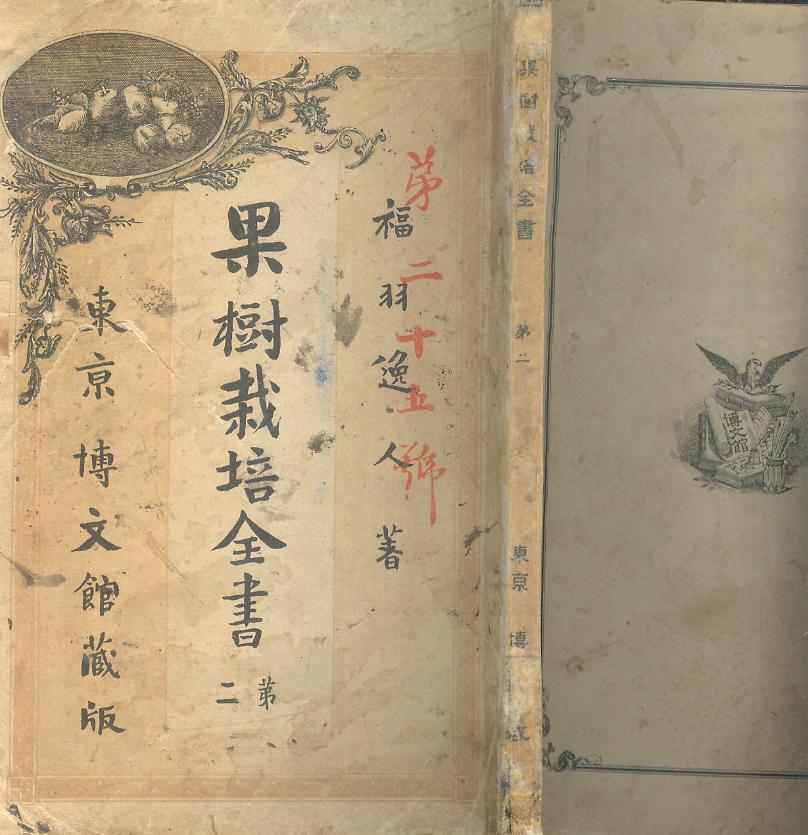 福羽逸人著
第二十五號
果樹栽培全書
第二
東京博文館藏版
果樹栽培全書 第二 東京 博
博文館